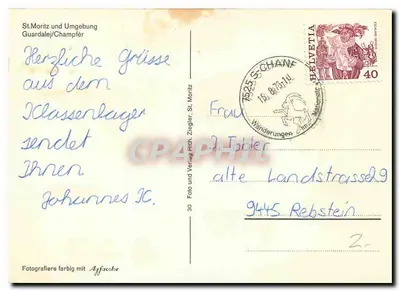 St. Moritz und Umgebung
Guardalej/Champfèr
Herzliche Grüsse
aus dem
Klassenlager
sendet
Ihnen
Johannes K.
Fotografiere farbig mit Agfacolor
30 Foto und Verlag Rich. Ziegler, St. Moritz
7525 S-CHANF
Wanderungen
HELVETIA
40
Frau
alte Landstrasse 29
9445 Rebstein
2.-
DELCAMPE